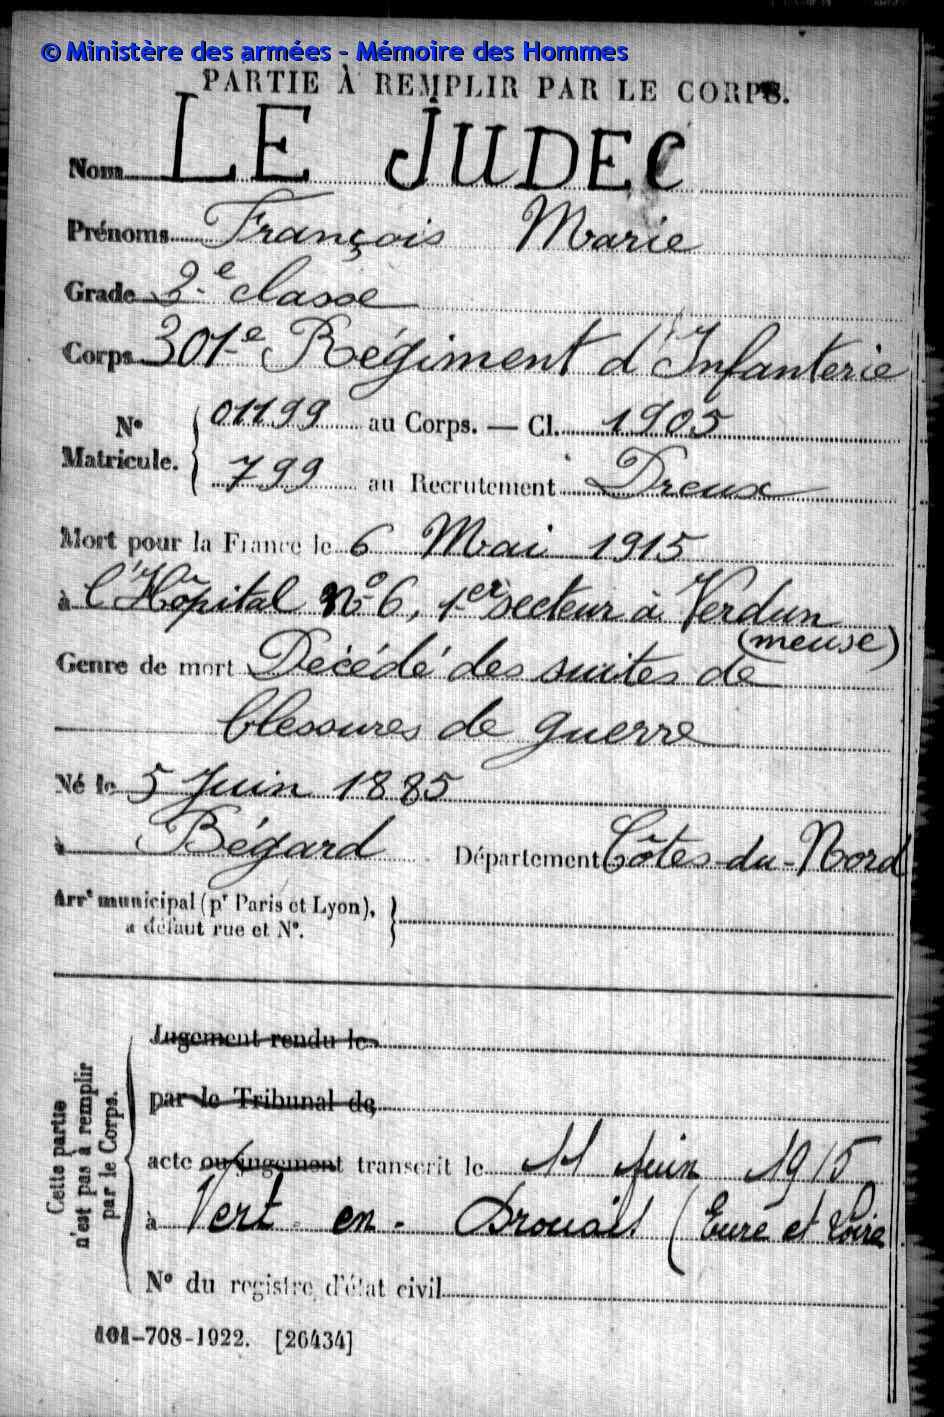 © Ministère des armées - Mémoire des Hommes
PARTIE À REMPLIR PAR LE CORPS.
Nom LE JUDEC
Prénoms François Marie
Grade 2e classe
Corps 301e Régiment d'Infanterie
N° Matricule. { 01199 au Corps. — Cl. 1905
799 au Recrutement Dreux
Mort pour la France le 6 Mai 1915
à l'Hôpital N° 6, 1er secteur à Verdun
(meuse)
Genre de mort Décédé des suites de
blessures de guerre
Né le 5 Juin 1885
à Bégard Département Côtes-du-Nord
Arrt municipal (pr Paris et Lyon),
a défaut rue et N°.
Cette partie
n'est pas à remplir
par le Corps.
Jugement rendu le
par le Tribunal de
acte ou jugement transcrit le 11 Juin 1915
à Vert-en-Drouais (Eure et Loire
N° du registre d'état civil
101-708-1922. [26434]